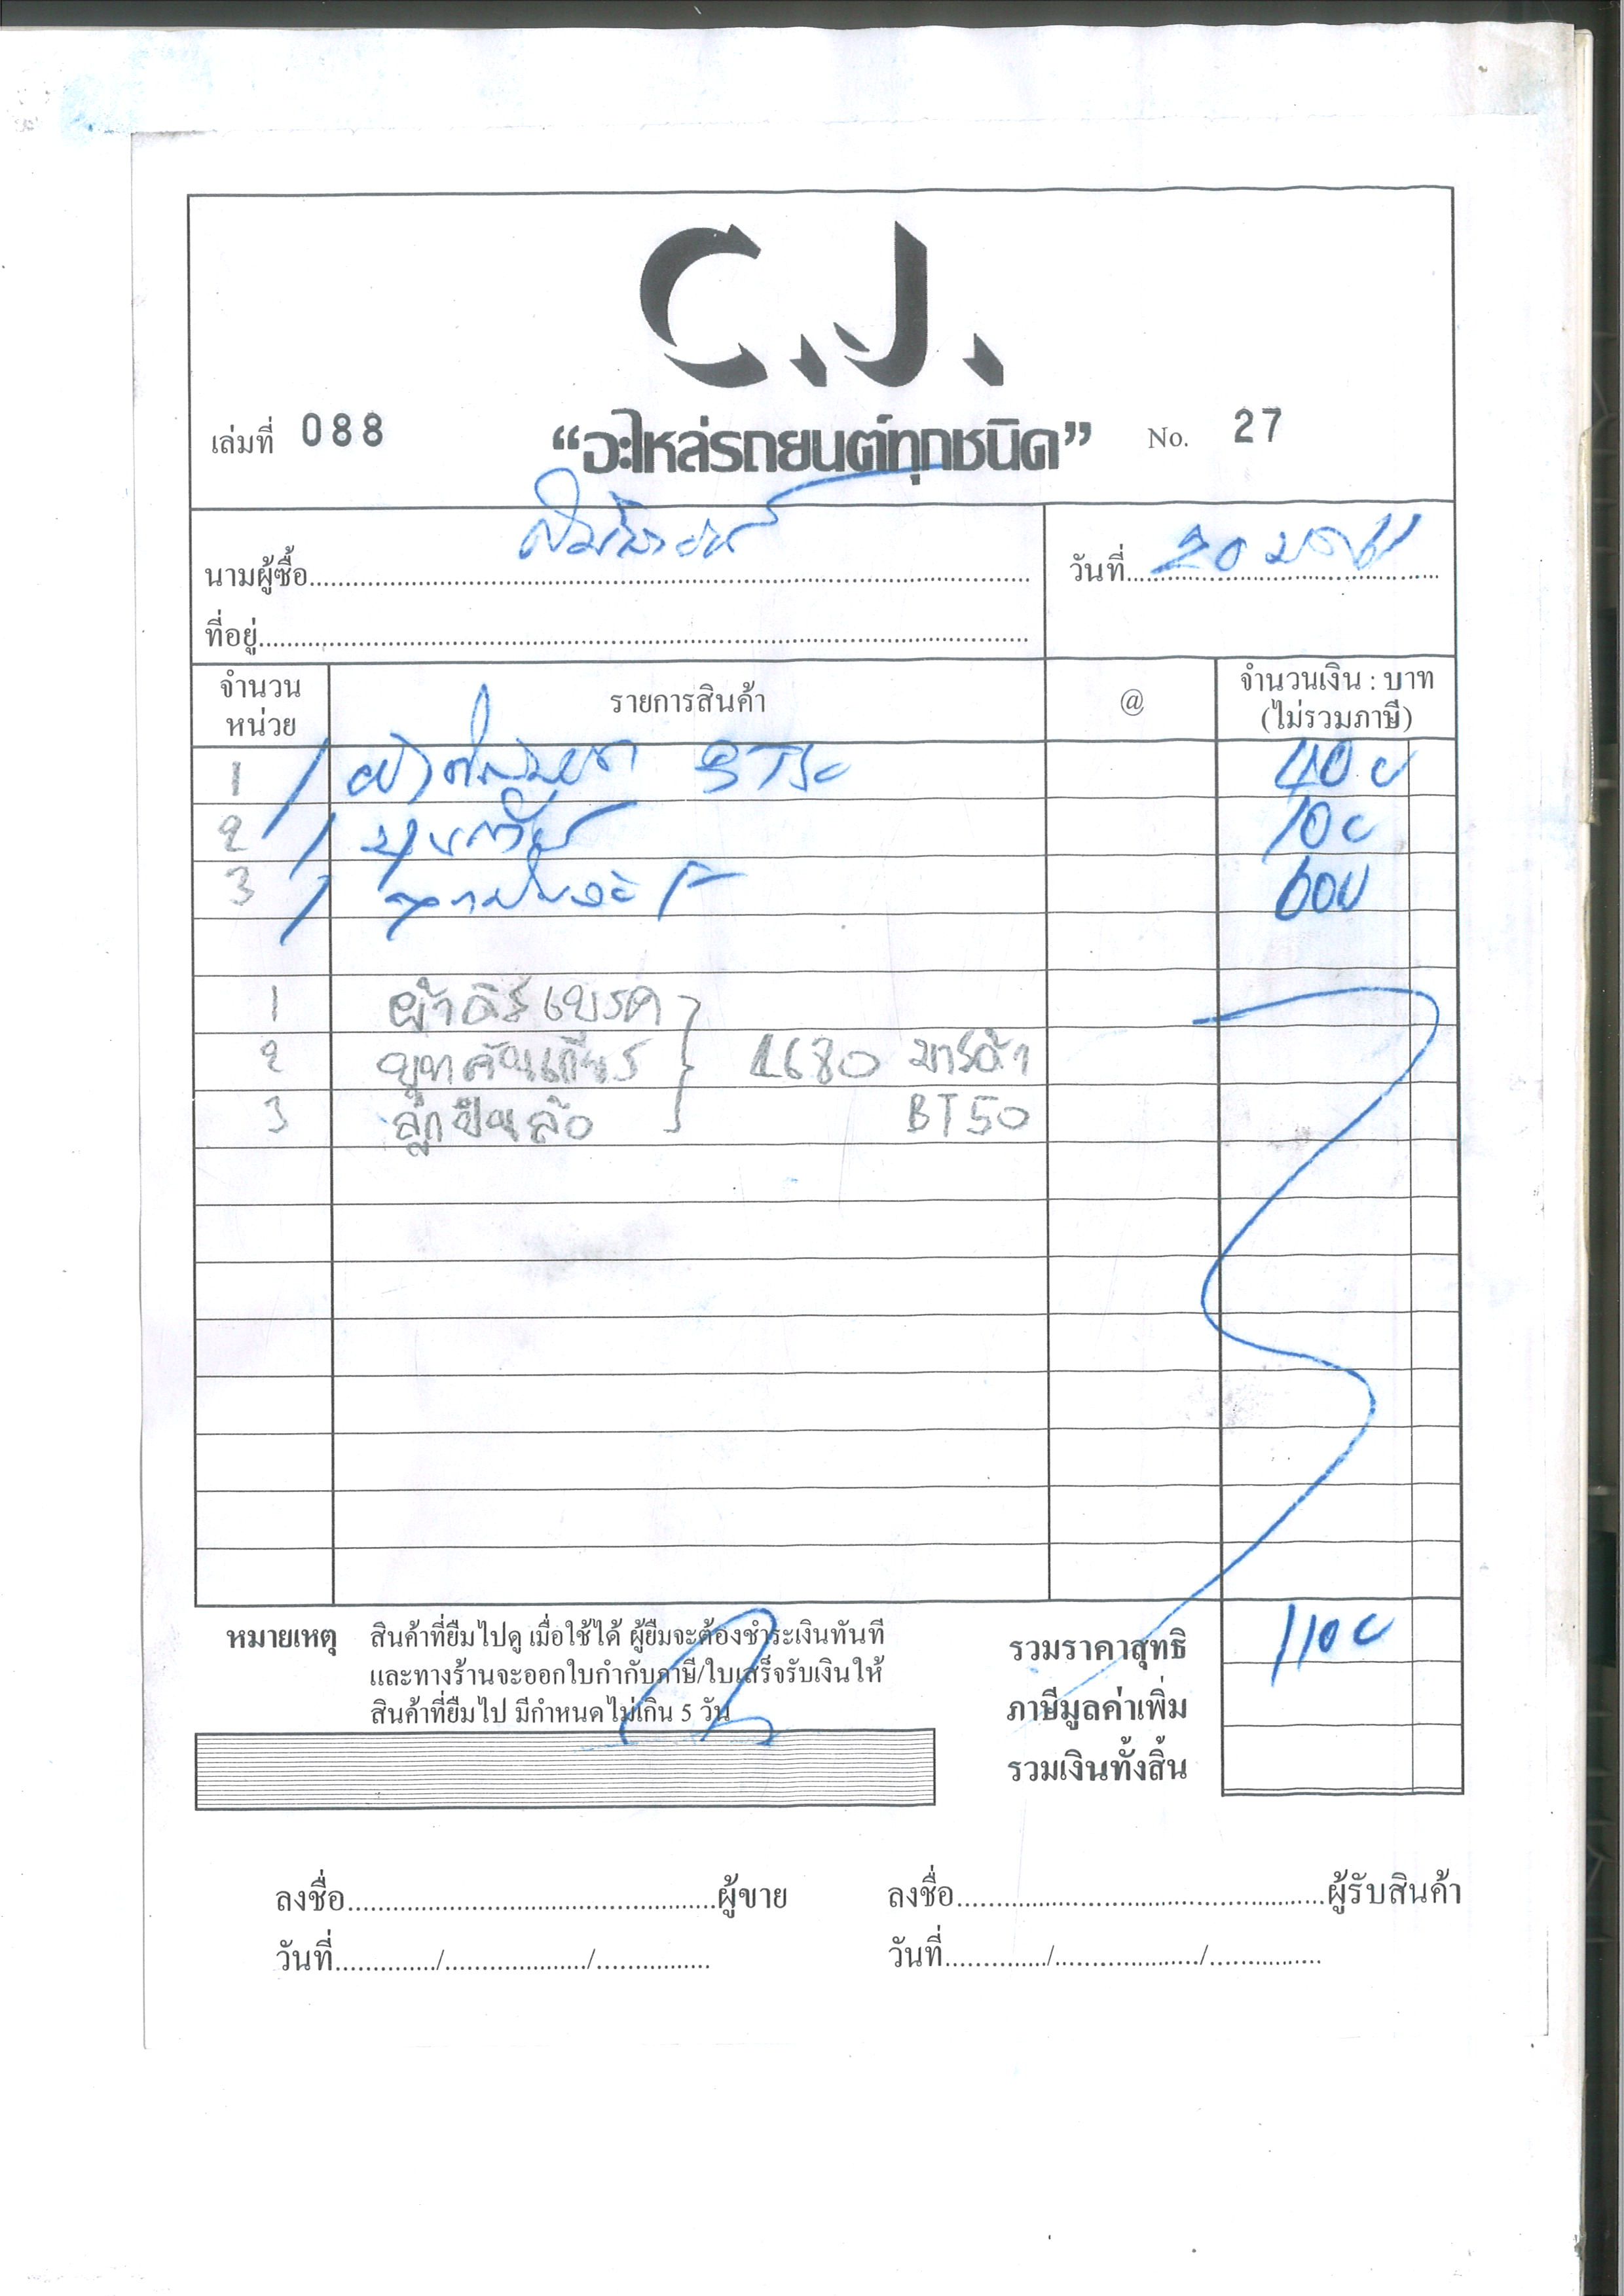 C.J.
เล่มที่ 088 “อะไหล่รถยนต์ทุกชนิด” No. 27
นามผู้ซื้อ
วันที่ 20
ที่อยู่
จำนวนหน่วย รายการสินค้า @ จำนวนเงิน : บาท (ไม่รวมภาษี)
1 / 400
2 / 100
3 / ลูกปืนล้อ F 600
1 ผ้าดิสเบรค
2 บูทคันเกียร์ 1680 มาสด้า
3 ลูกปืนล้อ BT50
หมายเหตุ สินค้าที่ยืมไปดู เมื่อใช้ได้ ผู้ยืมจะต้องชำระเงินทันที
และทางร้านจะออกใบกำกับภาษี/ใบเสร็จรับเงินให้
สินค้าที่ยืมไป มีกำหนดไม่เกิน 5 วัน
รวมราคาสุทธิ 1100
ภาษีมูลค่าเพิ่ม
รวมเงินทั้งสิ้น
ลงชื่อ ผู้ขาย ลงชื่อ ผู้รับสินค้า
วันที่ / / วันที่ / /